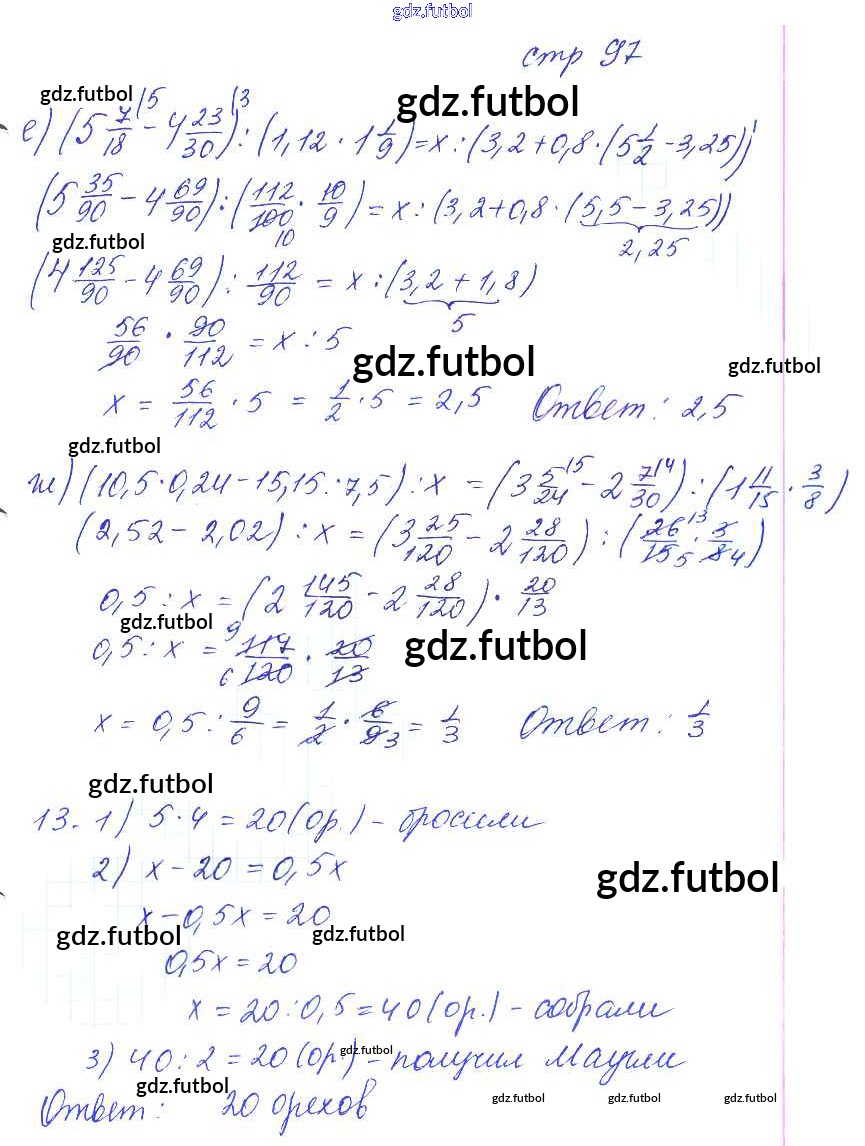 gdz.futbol
стр 97
gdz.futbol gdz.futbol
е) (5 7/18 |5 - 4 23/30 |3) : (1,12 · 1 1/9) = x : (3,2 + 0,8 · (5 1/2 - 3,25))
(5 35/90 - 4 69/90) : (112/100 10 · 10/9) = x : (3,2 + 0,8 · (5,5 - 3,25))
2,25
gdz.futbol
(4 125/90 - 4 69/90) : 112/90 = x : (3,2 + 1,8)
5
56/90 · 90/112 = x : 5
gdz.futbol gdz.futbol
x = 56/112 · 5 = 1/2 · 5 = 2,5 Ответ: 2,5
gdz.futbol
ж) (10,5 · 0,24 - 15,15 : 7,5) : x = (3 5/24 |5 - 2 7/30 |4) : (1 11/15 · 3/8)
(2,52 - 2,02) : x = (3 25/120 - 2 28/120) : (26 13/15 5 · 3/8 4)
0,5 : x = (2 145/120 - 2 28/120) · 20/13
gdz.futbol
0,5 : x = 9 117/6 120 · 20/13
gdz.futbol
x = 0,5 : 9/6 = 1/2 · 6/9 3 = 1/3 Ответ: 1/3
gdz.futbol
13. 1) 5 · 4 = 20 (ор.) - бросили
2) x - 20 = 0,5x
gdz.futbol
x - 0,5x = 20
gdz.futbol gdz.futbol
0,5x = 20
x = 20 : 0,5 = 40 (ор.) - собрали
3) 40 : 2 = 20 (ор.) - получил Маугли
gdz.futbol
gdz.futbol
Ответ: 20 орехов
gdz.futbol gdz.futbol gdz.futbol